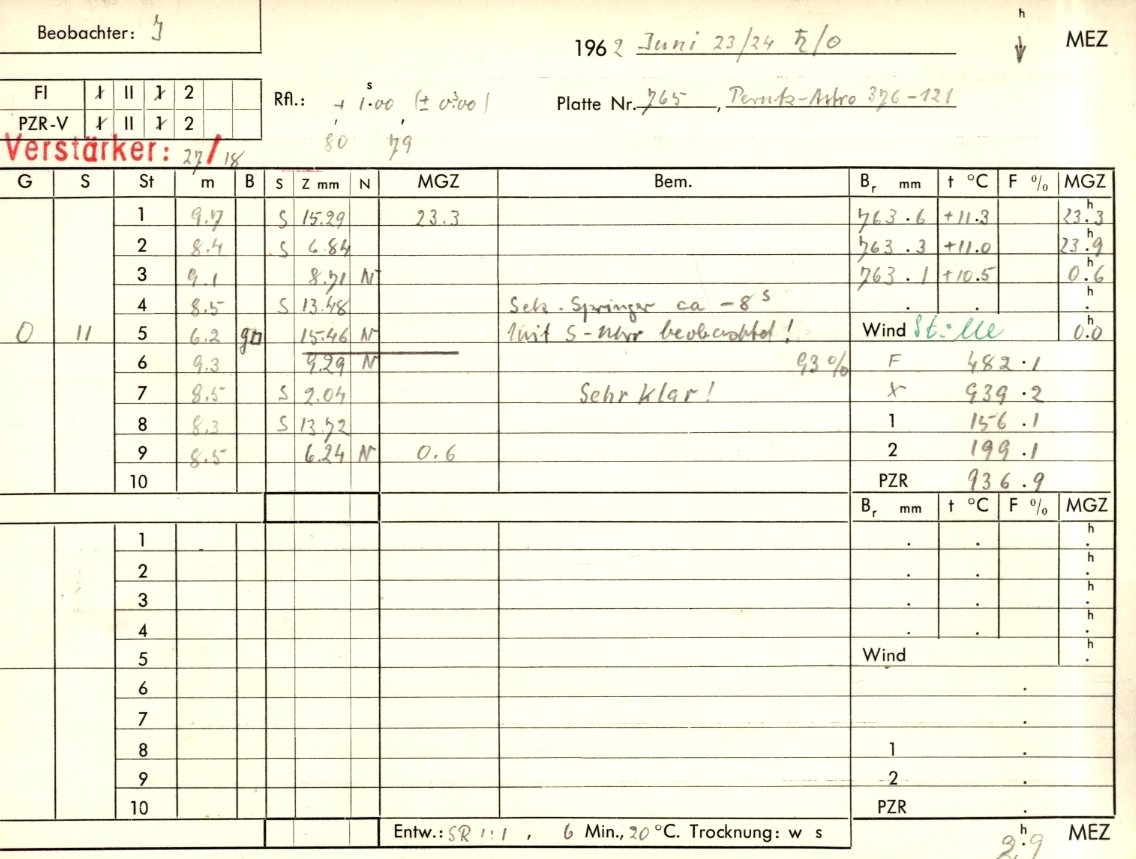 Beobachter: J
1962 Juni 23/24 ♄/☉ h MEZ
FI 1 II 1 2
PZR-V 1 II 1 2
Rfl.: + 1.ˢ00 (± 0.ˢ00)
80 79
Platte Nr. 765, Perutz-Astro 376-121
Verstärker: 27/18
G S St m B S Z mm N MGZ Bem. Bᵣ mm t °C F % MGZ
1 9.7 S 15.29 23.3 763.6 +11.3 23.ʰ3
2 8.4 S 6.84 763.3 +11.0 23.ʰ9
3 9.1 8.71 N 763.1 +10.5 0.ʰ6
4 8.5 S 13.48 Sek. Springer ca -8ˢ . . h.
0 11 5 6.2 gn 15.46 N Mit S-Uhr beobachtet! Wind Stille 0.ʰ0
6 9.3 9.29 N 93% F 482.1
7 8.5 S 2.04 Sehr klar! X 939.2
8 8.3 S 13.72 1 156.1
9 8.5 6.24 N 0.6 2 199.1
10 PZR 936.9
Bᵣ mm t °C F % MGZ
1 . . h.
2 . . h.
3 . . h.
4 . . h.
5 Wind h.
6 .
7 .
8 1 .
9 2 .
10 PZR .
Entw.: SR 1:1, 6 Min., 20 °C. Trocknung: w s 2.ʰ9 MEZ